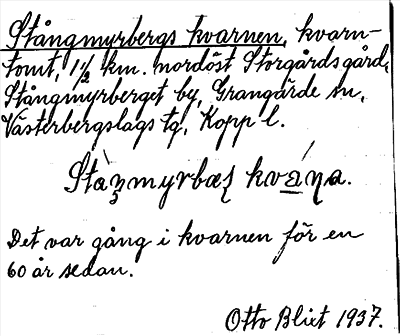 Stångmyrbergs kvarnen, kvarn-
tomt, 1 1/2 km. nordöst Storgårdsgård,
Stångmyrberget by, Grangärde sn,
Västerbergslags tg, Kopp l.
kvana.
Det var gång i kvarnen för en
60 år sedan.
Otto Blixt 1937.